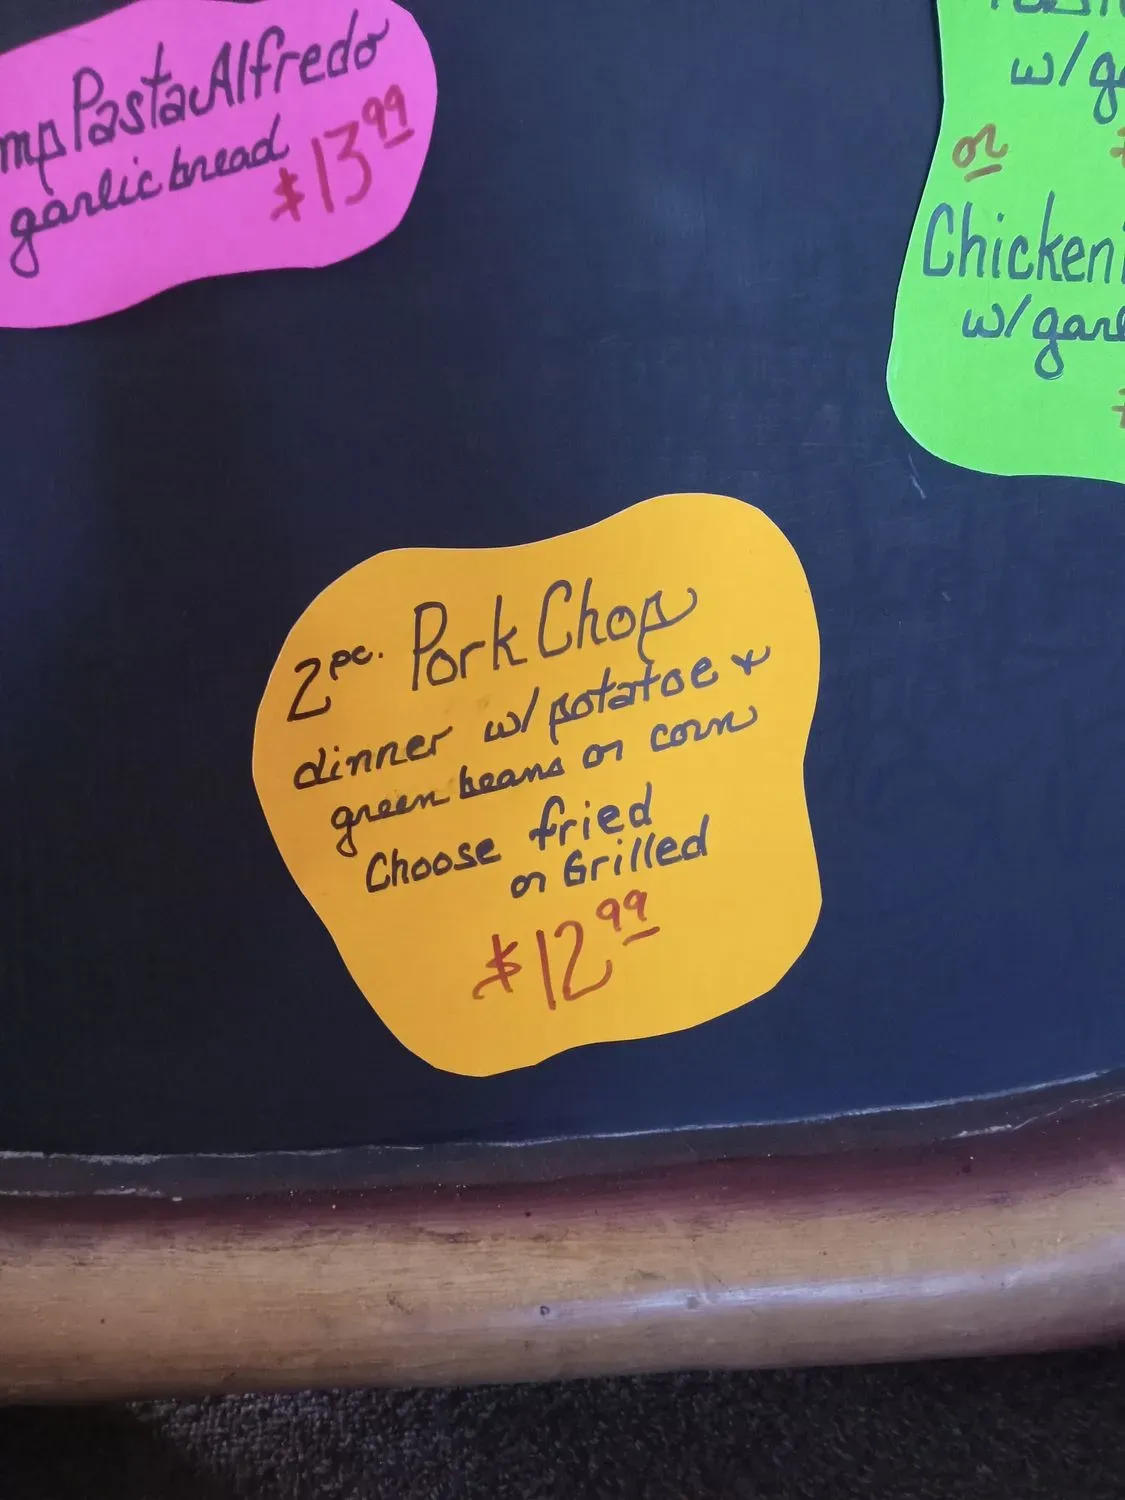 Pasta Alfredo
garlic bread
$13.99
w/
or
Chicken
w/
2 pc. Pork Chop
dinner w/ potatoe &
green beans or corn
Choose fried
or Grilled
$12.99